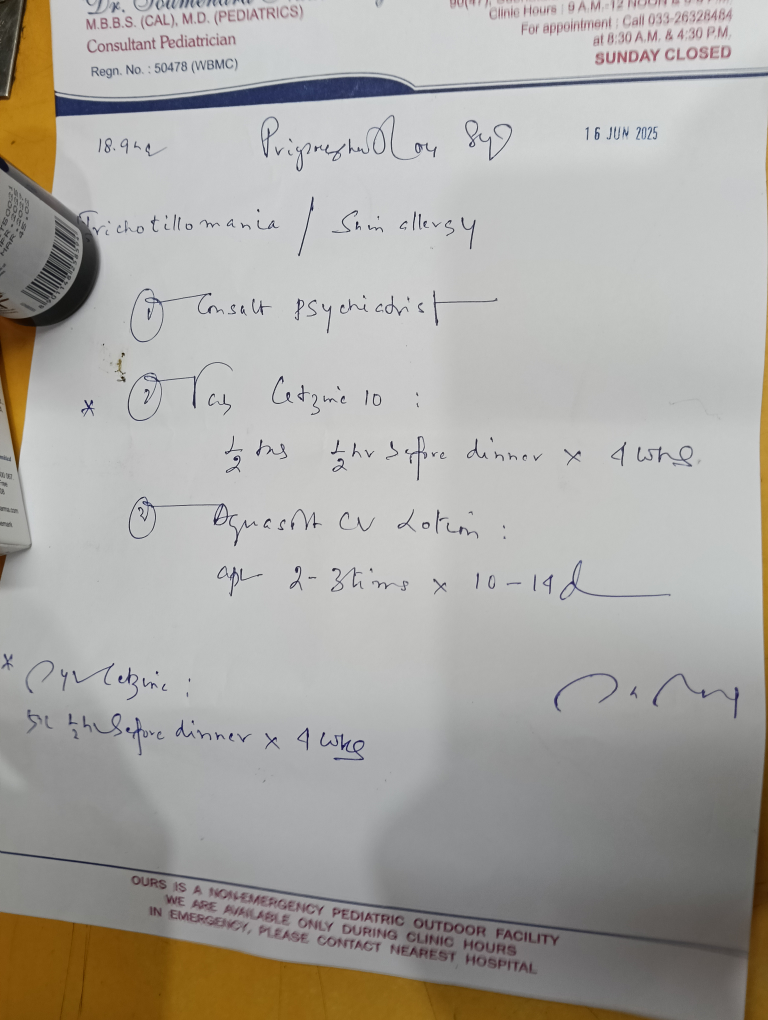 M.B.B.S. (CAL), M.D. (PEDIATRICS)
Consultant Pediatrician
Regn. No. : 50478 (WBMC)
Clinic Hours : 9 A.M.-12 NOON &
For appointment : Call 033-26328484
at 8:30 A.M. & 4:30 P.M.
SUNDAY CLOSED
16 JUN 2025
Trichotillomania / Skin allergy
1 Consult Psychiatrist
* 2 Tab Cetzine 10 :
1/2 tab 1/2 hr before dinner x 4 wks
3 Aquasoft CV Lotion :
2-3 times x 10-14 d
* Syr Cetzine :
5ml 1/2 hr before dinner x 4 wks
OURS IS A NON-EMERGENCY PEDIATRIC OUTDOOR FACILITY
WE ARE AVAILABLE ONLY DURING CLINIC HOURS
IN EMERGENCY, PLEASE CONTACT NEAREST HOSPITAL